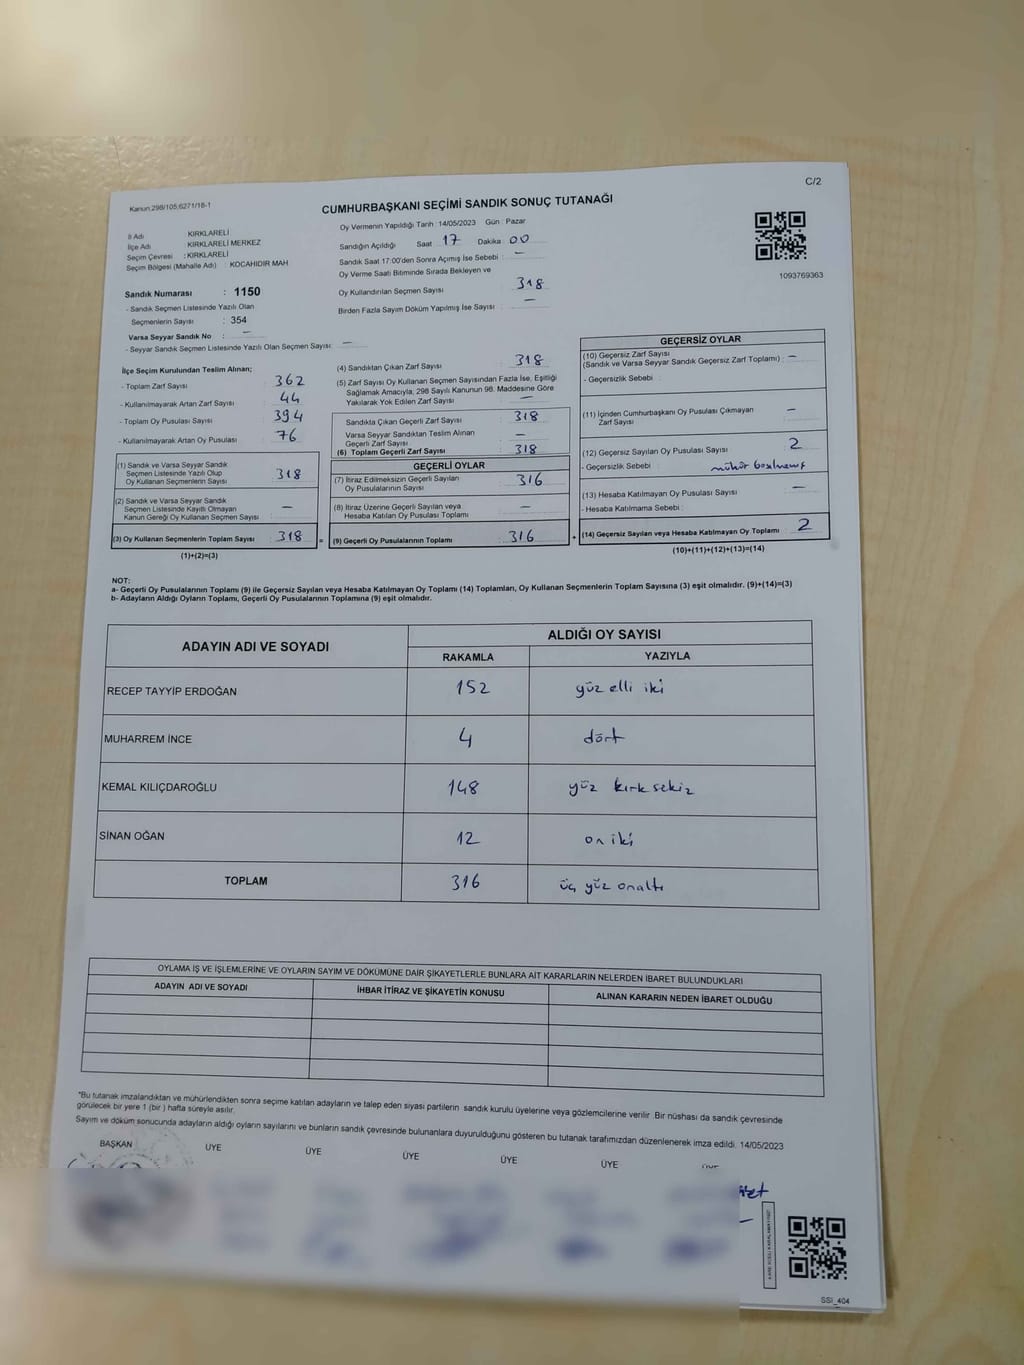 C/2
Kanun:298/105;6271/18-1
CUMHURBAŞKANI SEÇİMİ SANDIK SONUÇ TUTANAĞI
İl Adı KIRKLARELİ
İlçe Adı KIRKLARELİ MERKEZ
Seçim Çevresi : KIRKLARELİ
Seçim Bölgesi (Mahalle Adı) : KOCAHIDIR MAH
Sandık Numarası : 1150
- Sandık Seçmen Listesinde Yazılı Olan
Seçmenlerin Sayısı : 354
Varsa Seyyar Sandık No : —
- Seyyar Sandık Seçmen Listesinde Yazılı Olan Seçmen Sayısı: —
Oy Vermenin Yapıldığı Tarih : 14/05/2023 Gün : Pazar
Sandığın Açıldığı Saat 17 Dakika 00
Sandık Saat 17:00'den Sonra Açımış İse Sebebi : —
Oy Verme Saati Bitiminde Sırada Bekleyen ve
Oy Kullandırılan Seçmen Sayısı : 318
Birden Fazla Sayım Döküm Yapılmış İse Sayısı : —
1093769363
İlçe Seçim Kurulundan Teslim Alınan;
- Toplam Zarf Sayısı : 362
- Kullanılmayarak Artan Zarf Sayısı : 44
- Toplam Oy Pusulası Sayısı : 394
- Kullanılmayarak Artan Oy Pusulası : 76
(1) Sandık ve Varsa Seyyar Sandık
Seçmen Listesinde Yazılı Olup
Oy Kullanan Seçmenlerin Sayısı : 318
(2) Sandık ve Varsa Seyyar Sandık
Seçmen Listesinde Kayıtlı Olmayan
Kanun Gereği Oy Kullanan Seçmen Sayısı : —
(3) Oy Kullanan Seçmenlerin Toplam Sayısı : 318
(1)+(2)=(3)
(4) Sandıktan Çıkan Zarf Sayısı : 318
(5) Zarf Sayısı Oy Kullanan Seçmen Sayısından Fazla İse, Eşitliği
Sağlamak Amacıyla, 298 Sayılı Kanunun 98. Maddesine Göre
Yakılarak Yok Edilen Zarf Sayısı : —
Sandıkta Çıkan Geçerli Zarf Sayısı : 318
Varsa Seyyar Sandıktan Teslim Alınan
Geçerli Zarf Sayısı : —
(6) Toplam Geçerli Zarf Sayısı : 318
GEÇERLİ OYLAR
(7) İtiraz Edilmeksizin Geçerli Sayılan
Oy Pusulalarının Sayısı : 316
(8) İtiraz Üzerine Geçerli Sayılan veya
Hesaba Katılan Oy Pusulası Toplamı : —
= (9) Geçerli Oy Pusulalarının Toplamı : 316
GEÇERSİZ OYLAR
(10) Geçersiz Zarf Sayısı
(Sandık ve Varsa Seyyar Sandık Geçersiz Zarf Toplamı) : —
- Geçersizlik Sebebi :
(11) İçinden Cumhurbaşkanı Oy Pusulası Çıkmayan
Zarf Sayısı : —
(12) Geçersiz Sayılan Oy Pusulası Sayısı : 2
- Geçersizlik Sebebi : mühür basılmamış
(13) Hesaba Katılmayan Oy Pusulası Sayısı : —
- Hesaba Katılmama Sebebi :
+ (14) Geçersiz Sayılan veya Hesaba Katılmayan Oy Toplamı : 2
(10)+(11)+(12)+(13)=(14)
NOT:
a- Geçerli Oy Pusulalarının Toplamı (9) ile Geçersiz Sayılan veya Hesaba Katılmayan Oy Toplamı (14) Toplamları, Oy Kullanan Seçmenlerin Toplam Sayısına (3) eşit olmalıdır. (9)+(14)=(3)
b- Adayların Aldığı Oyların Toplamı, Geçerli Oy Pusulalarının Toplamına (9) eşit olmalıdır.
ADAYIN ADI VE SOYADI ALDIĞI OY SAYISI
RAKAMLA YAZIYLA
RECEP TAYYİP ERDOĞAN 152 yüz elli iki
MUHARREM İNCE 4 dört
KEMAL KILIÇDAROĞLU 148 yüz kırk sekiz
SİNAN OĞAN 12 on iki
TOPLAM 316 üç yüz onaltı
OYLAMA İŞ VE İŞLEMLERİNE VE OYLARIN SAYIM VE DÖKÜMÜNE DAİR ŞİKAYETLERLE BUNLARA AİT KARARLARIN NELERDEN İBARET BULUNDUKLARI
ADAYIN ADI VE SOYADI İHBAR İTİRAZ VE ŞİKAYETİN KONUSU ALINAN KARARIN NEDEN İBARET OLDUĞU
*Bu tutanak imzalandıktan ve mühürlendikten sonra seçime katılan adayların ve talep eden siyasi partilerin sandık kurulu üyelerine veya gözlemcilerine verilir. Bir nüshası da sandık çevresinde
görülecek bir yere 1 (bir ) hafta süreyle asılır.
Sayım ve döküm sonucunda adayların aldığı oyların sayılarını ve bunların sandık çevresinde bulunanlara duyurulduğunu gösteren bu tutanak tarafımızdan düzenlenerek imza edildi. 14/05/2023
BAŞKAN ÜYE ÜYE ÜYE ÜYE ÜYE
SSI_404